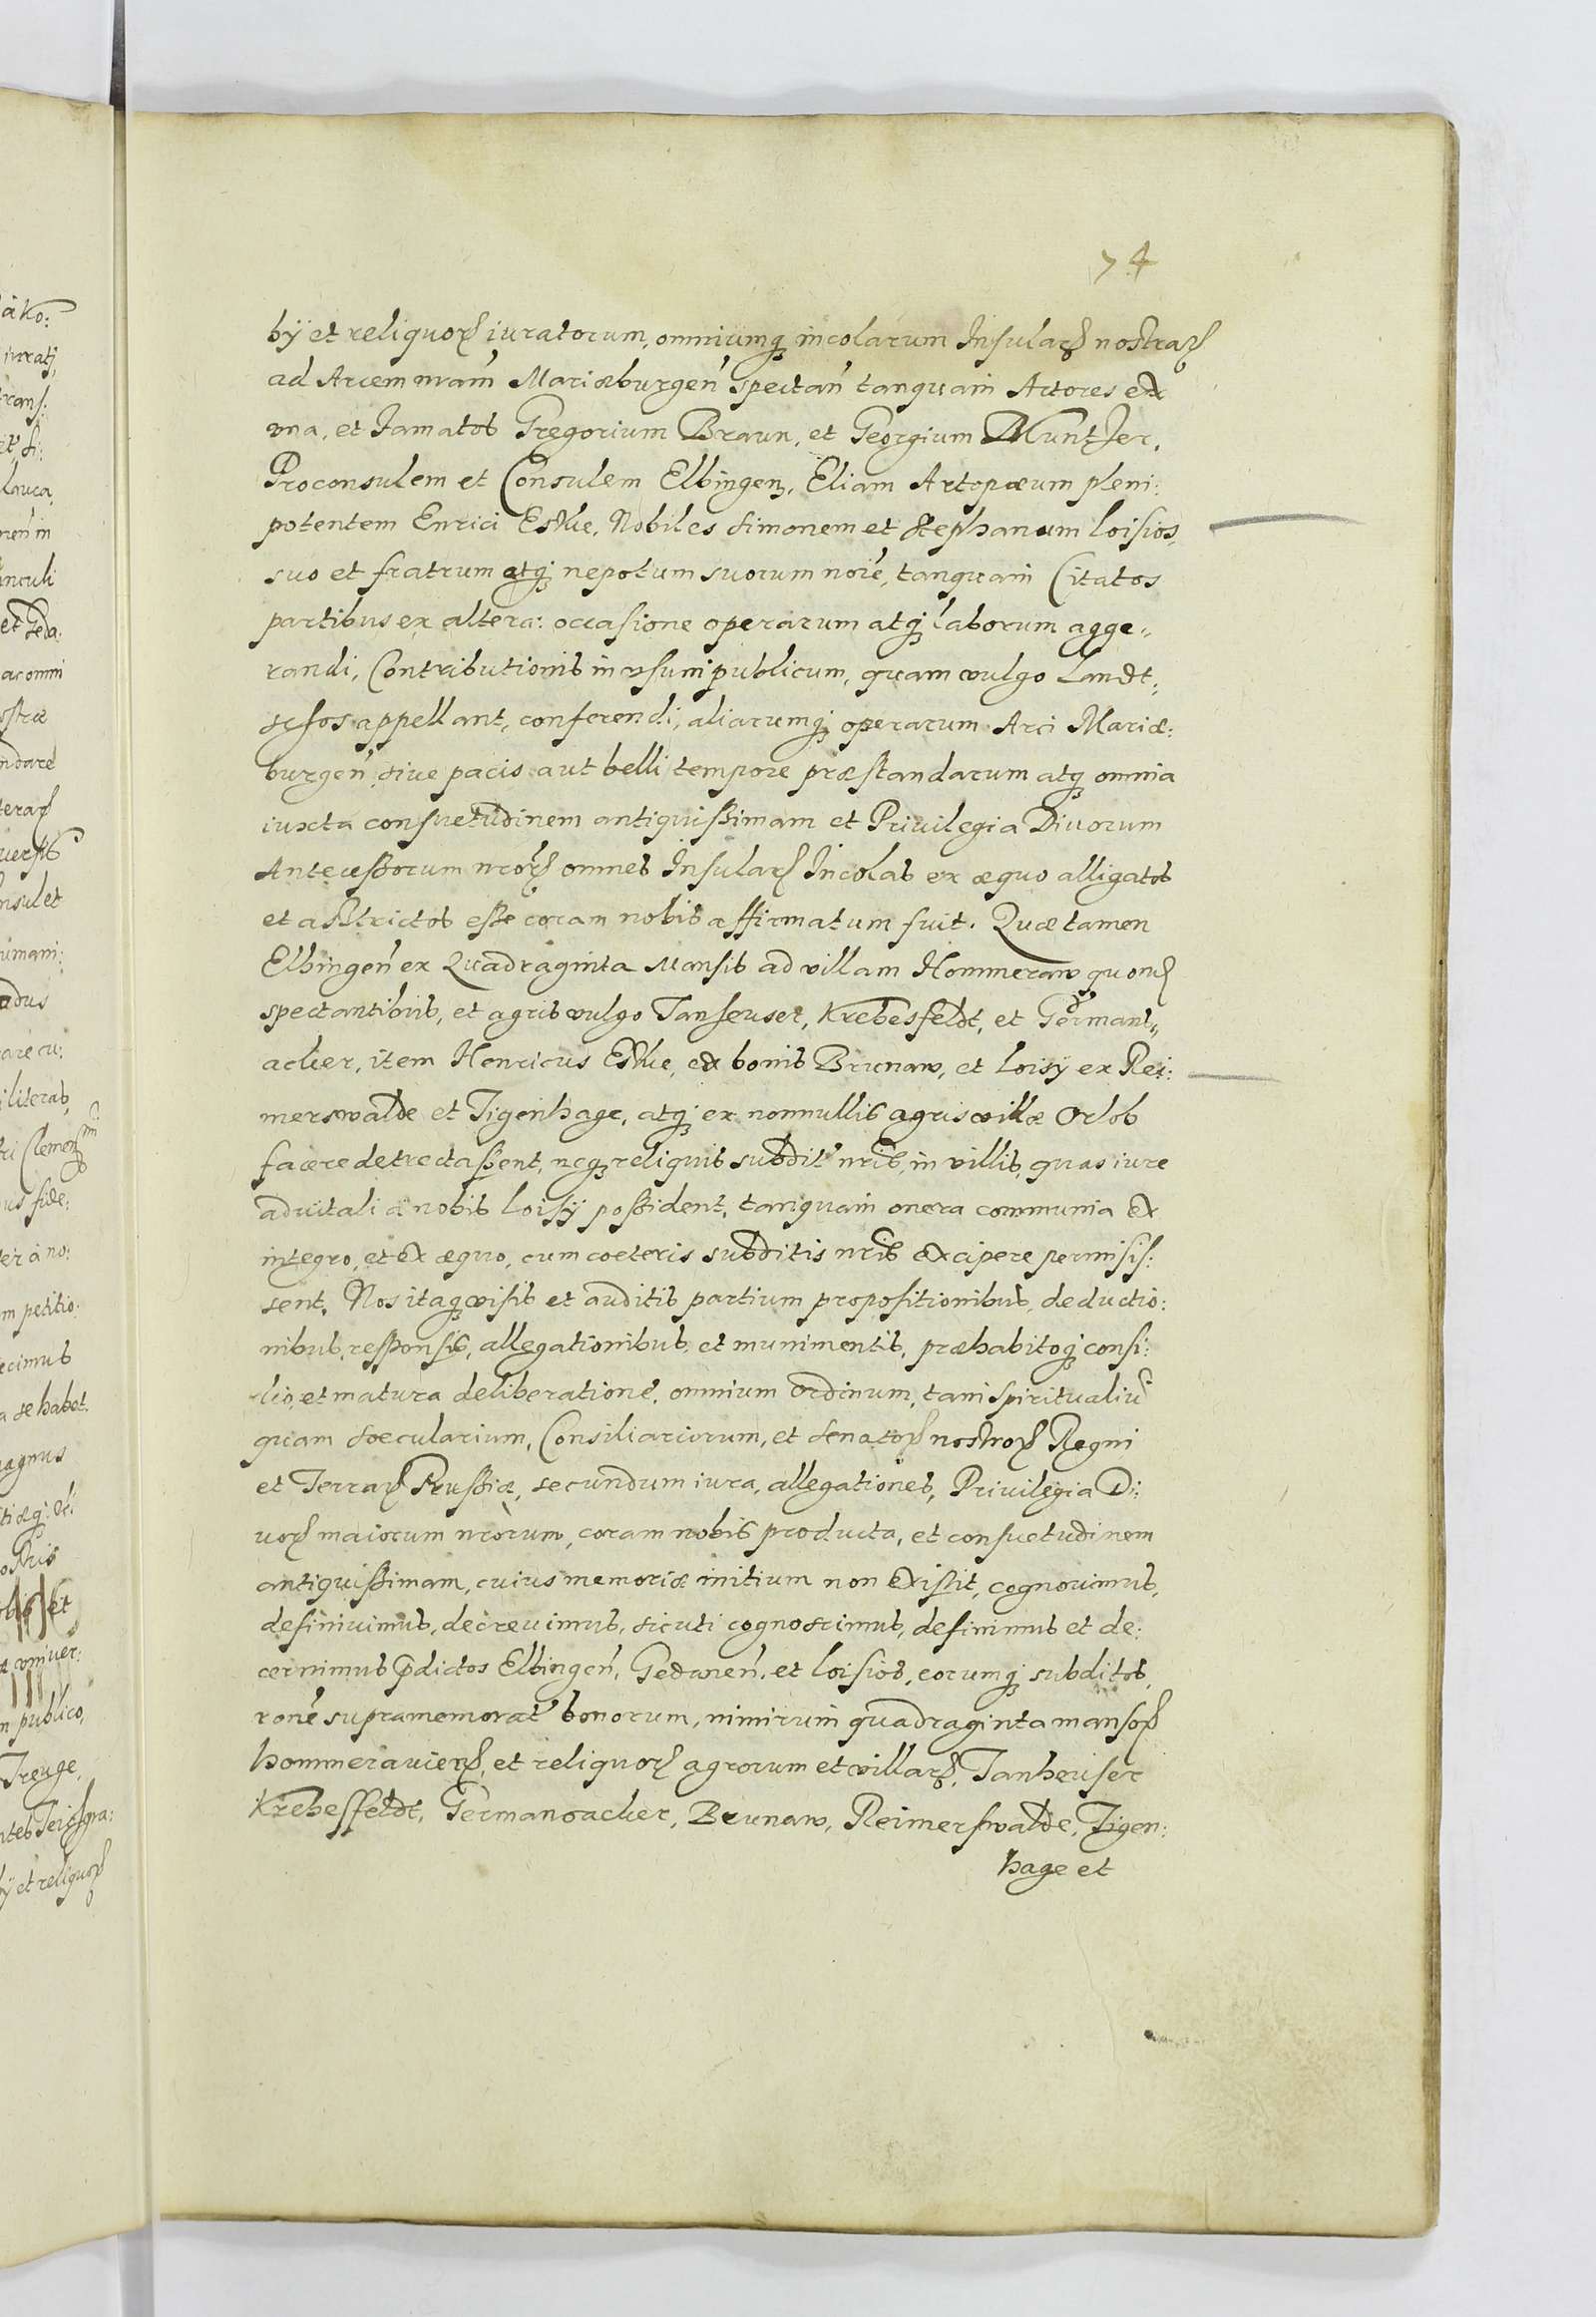 74
bÿ et reliquorꝝ iuratorum, omniumqꝫ incolarum Insularꝝ nostrarꝝ
ad Arcem nram̄ Mariæburgen̄ spectan̄ tanquam Actores ex
vna, et Famatos Gregorium Braun, et Georgium Muntzer,
Proconsulem et Consulem Elbingen, Eliam Artopæum pleni:
potentem Enrici Eske, Nobiles Simonem et Stephanum loisios,
suo et fratrum atqꝫ nepotum suorum noīe, tanquam Citatos
partibus ex altera: occasione operarum atqꝫ laborum agge„
randi, Contributionis in vsum publicum, quam vulgo Landt„
schos appellant, conferendi, aliarumqꝫ operarum Arci Mariæ:
burgen̄ siue pacis aut belli tempore præstandarum atqꝫ omnia
iuxta consuetudinem antiquißimam et Priuilegia Diuorum
Anteceßorum nrorꝝ omnes Insularꝝ Incolas ex æquo alligatos
et astrictos eße coram nobis affirmatum fuit. Quæ tamen
Elbingen̄ ex Quadraginta Mansis ad villam Hommeraw quond
spectantibus, et agris vulgo Tanheuser, Krebesfeldt, et Germans„
acker, item Henricus Eske, ex bonis Brunaw, et loisÿ ex Rei:
merswalde et Tigenhage, atqꝫ ex nonnullis agris villæ Orlob
facere detrectaßent, neqꝫ reliquis subdit' nris, in villis, quas iure
aduitali a nobis loisÿ poßident, tanquam onera communia ex
integro, et ex æquo, cum coeteris subditis nris excipere permisis:
sent. Nos itaqꝫ visis et auditis partium propositionibus, deductio:
nibus, responsis, allegationibus et munimentis, præhabitoqꝫ consi:
lio, et matura deliberatione, omnium ordinum, tam spiritualiū
quam sæcularium, Consiliariorum, et Senatorꝝ nostrorꝝ Regni
et Terrarꝝ Prußiæ, secundum iura, allegationes, Priuilegia Di:
uorꝝ maiorum nrorum, coram nobis producta, et consuetudinem
antiquißimam, cuius memoriæ initium non existit, cognouimus,
definiuimus, decreuimus, sicuti cognoscimus, definimus et de:
cernimus p̄dictos Elbingen̄, Gedanen̄, et loisios, eorumqꝫ subditos,
ronē supramemorat' bonorum, nimirum quadraginta mansorꝝ
hommerauienꝝ, et reliquorꝝ agrorum et villarꝝ, Tanheuser
Krebesfeldt, Germansacker, Brunaw, Reimerswalde, Tigen:
hage et